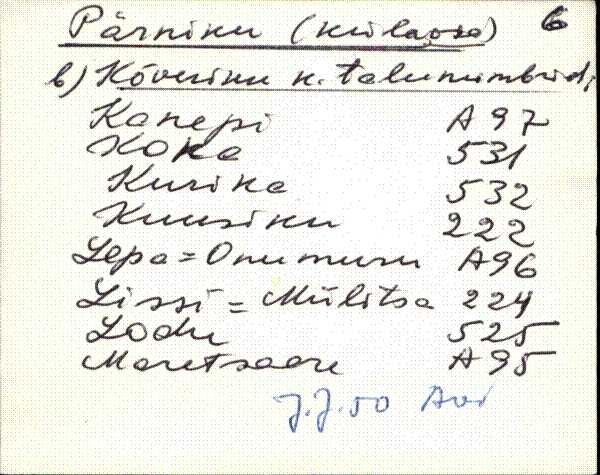 Pärniku (külaosa) 6
b) Kõveriku k. talunumbrid,
Kanepi A 97
Koka 531
Kurika 532
Kuusiku 222
Lepa = Onumuru A96
Lissi = Mülitsa 224
Lodu 525
Maretsaare A 95
J.J. 50